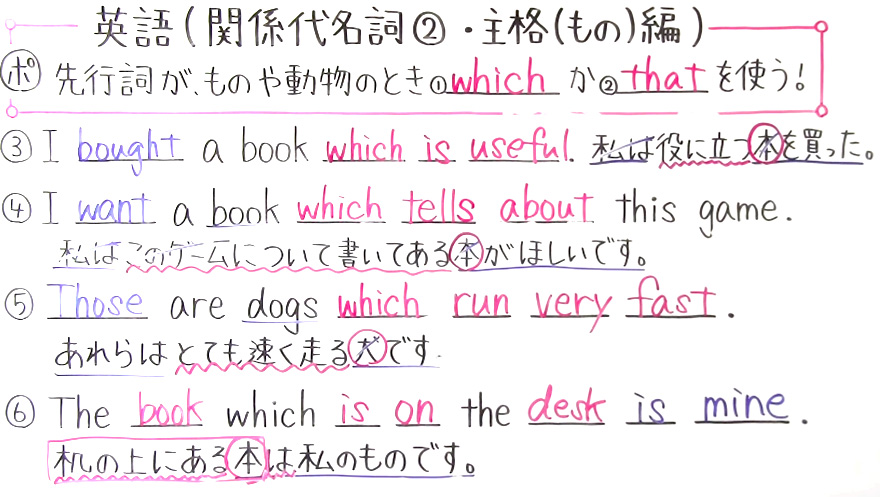 英語(関係代名詞②・主格(もの)編)
ポ 先行詞が、ものや動物のとき①whichか②thatを使う!
③ I bought a book which is useful. 私は役に立つ本を買った。
④ I want a book which tells about this game.
私はこのゲームについて書いてある本がほしいです。
⑤ Those are dogs which run very fast.
あれらはとても速く走る犬です.
⑥ The book which is on the desk is mine.
机の上にある本は私のものです。